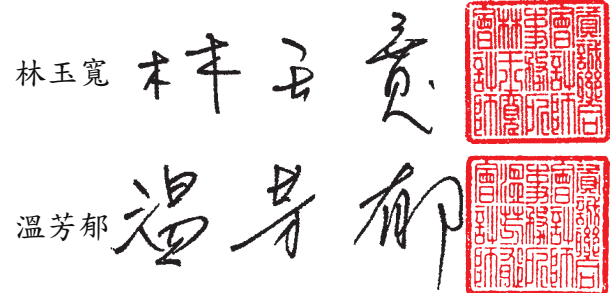 林玉寬 林玉寬 資誠聯合會計師事務所會計師林玉寬會計師
溫芳郁 溫芳郁 資誠聯合會計師事務所溫芳郁會計師